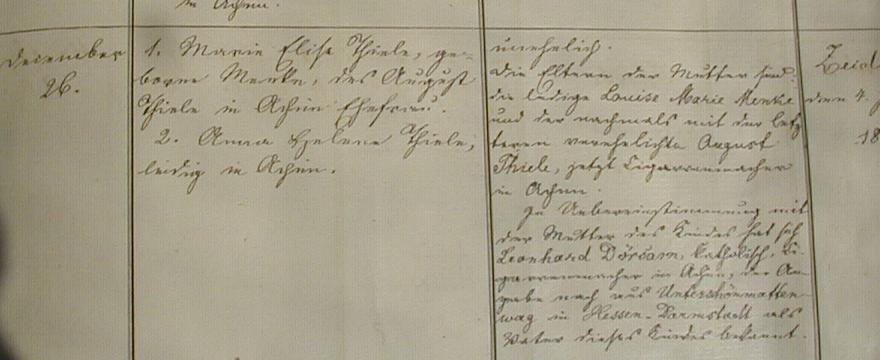 in Achim.
December
26.
1. Marie Elise Thiele, ge-
borne Menke, des August
Thiele in Achim Ehefrau.
2. Anna Helene Thiele,
ledig in Achim.
unehelich.
Die Eltern der Mutter sind:
die ledige Louise Marie Menke
und der nachmals mit der letz-
teren verehelichte August
Thiele, jetzt Cigarrenmacher
in Achim.
In Uebereinstimmung mit
der Mutter des Kindes hat sich
Leonhard Dörsam, katholisch, Ci-
garrenmacher in Achim, der An-
gabe nach aus Unterschönmatten-
wag in Hessen-Darmstadt als
Vater dieses Kindes bekannt.
den 4.
18